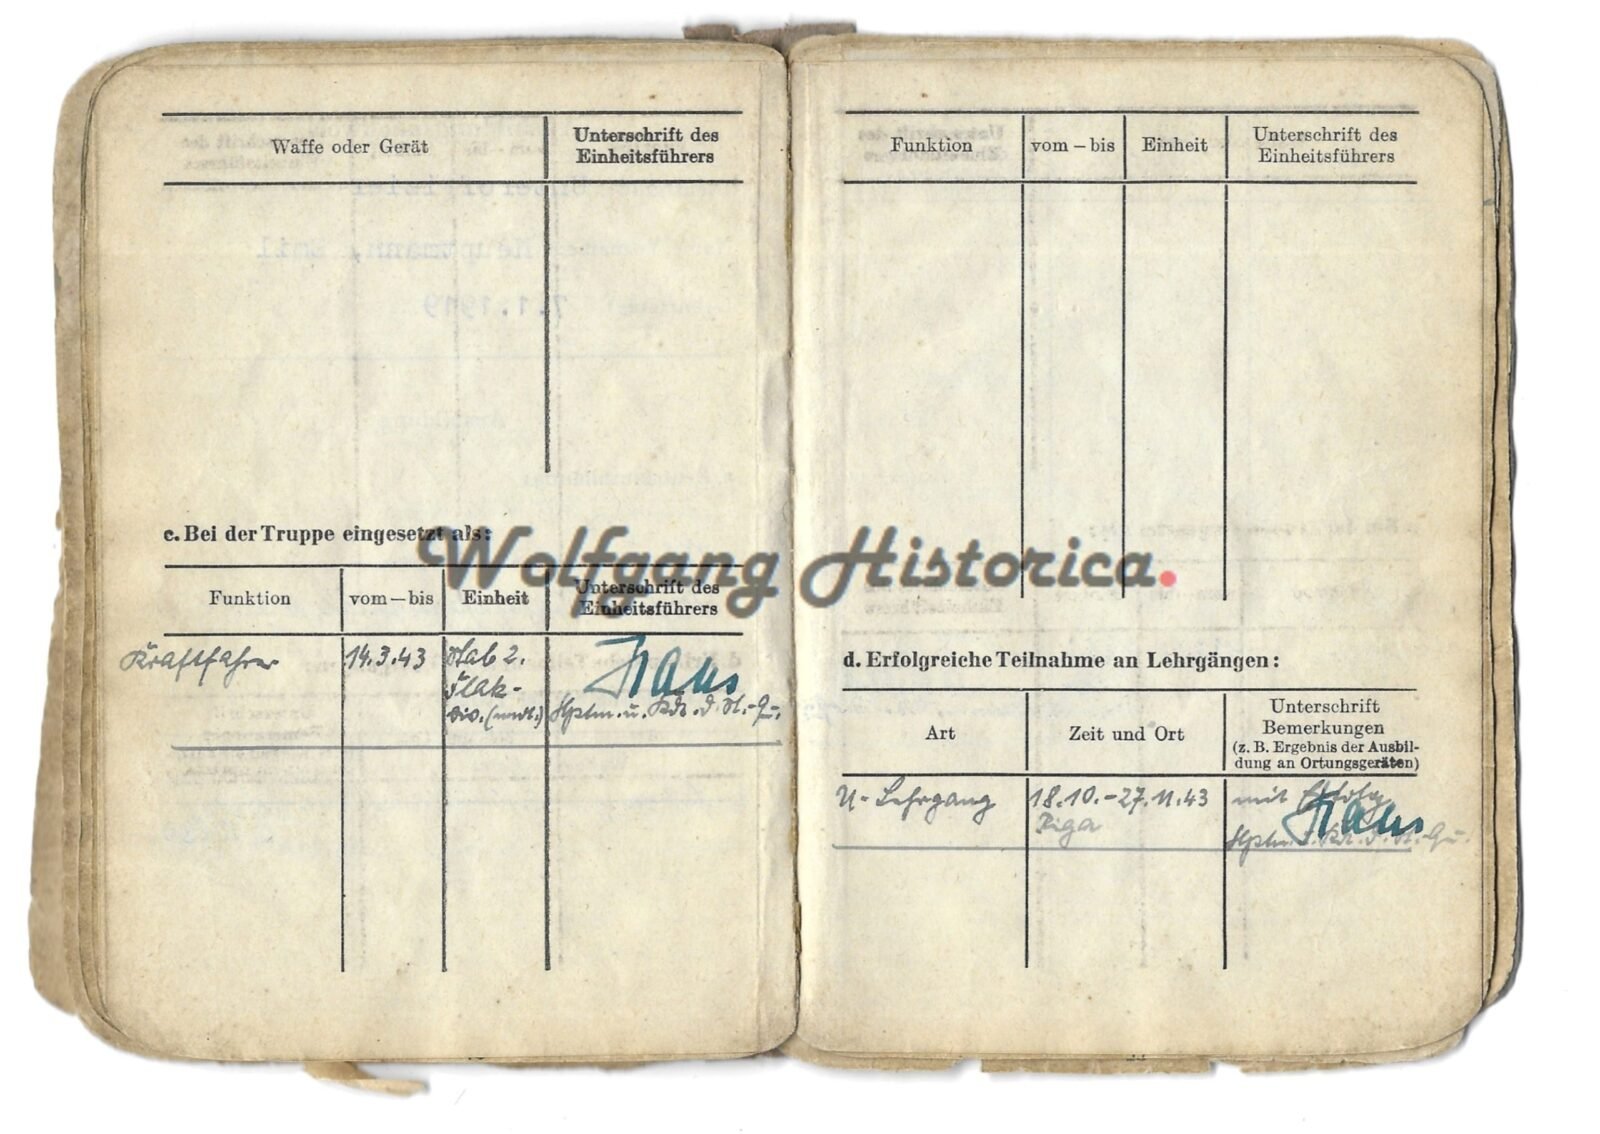 Waffe oder Gerät
Unterschrift des
Einheitsführers
c. Bei der Truppe eingesetzt als:
Funktion
vom – bis
Einheit
Unterschrift des
Einheitsführers
Kraftfahrer
14.3.43
Stab 2.
Flak-
Div. (mot.)
Hptm. u. Kdt. d. St.-Qu.
Funktion
vom – bis
Einheit
Unterschrift des
Einheitsführers
d. Erfolgreiche Teilnahme an Lehrgängen:
Art
Zeit und Ort
Unterschrift
Bemerkungen
(z. B. Ergebnis der Ausbil-
dung an Ortungsgeräten)
U-Lehrgang
18.10.-27.11.43
Riga
mit Erfolg
Hptm. u. Kdt. d. St.-Qu.
Wolfgang Historica.